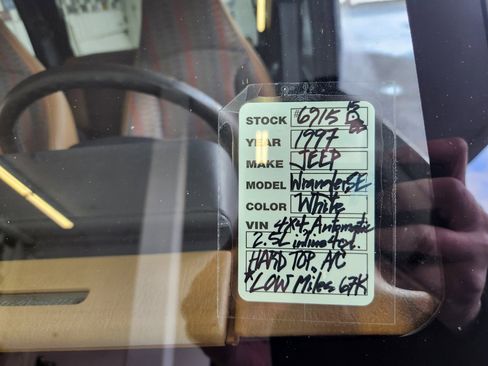 STOCK #6915
YEAR 1997
MAKE JEEP
MODEL Wrangler SE
COLOR White
VIN 4x4, Automatic
2.5L inline 4cyl.
HARD TOP, A/C
*LOW Miles 67K